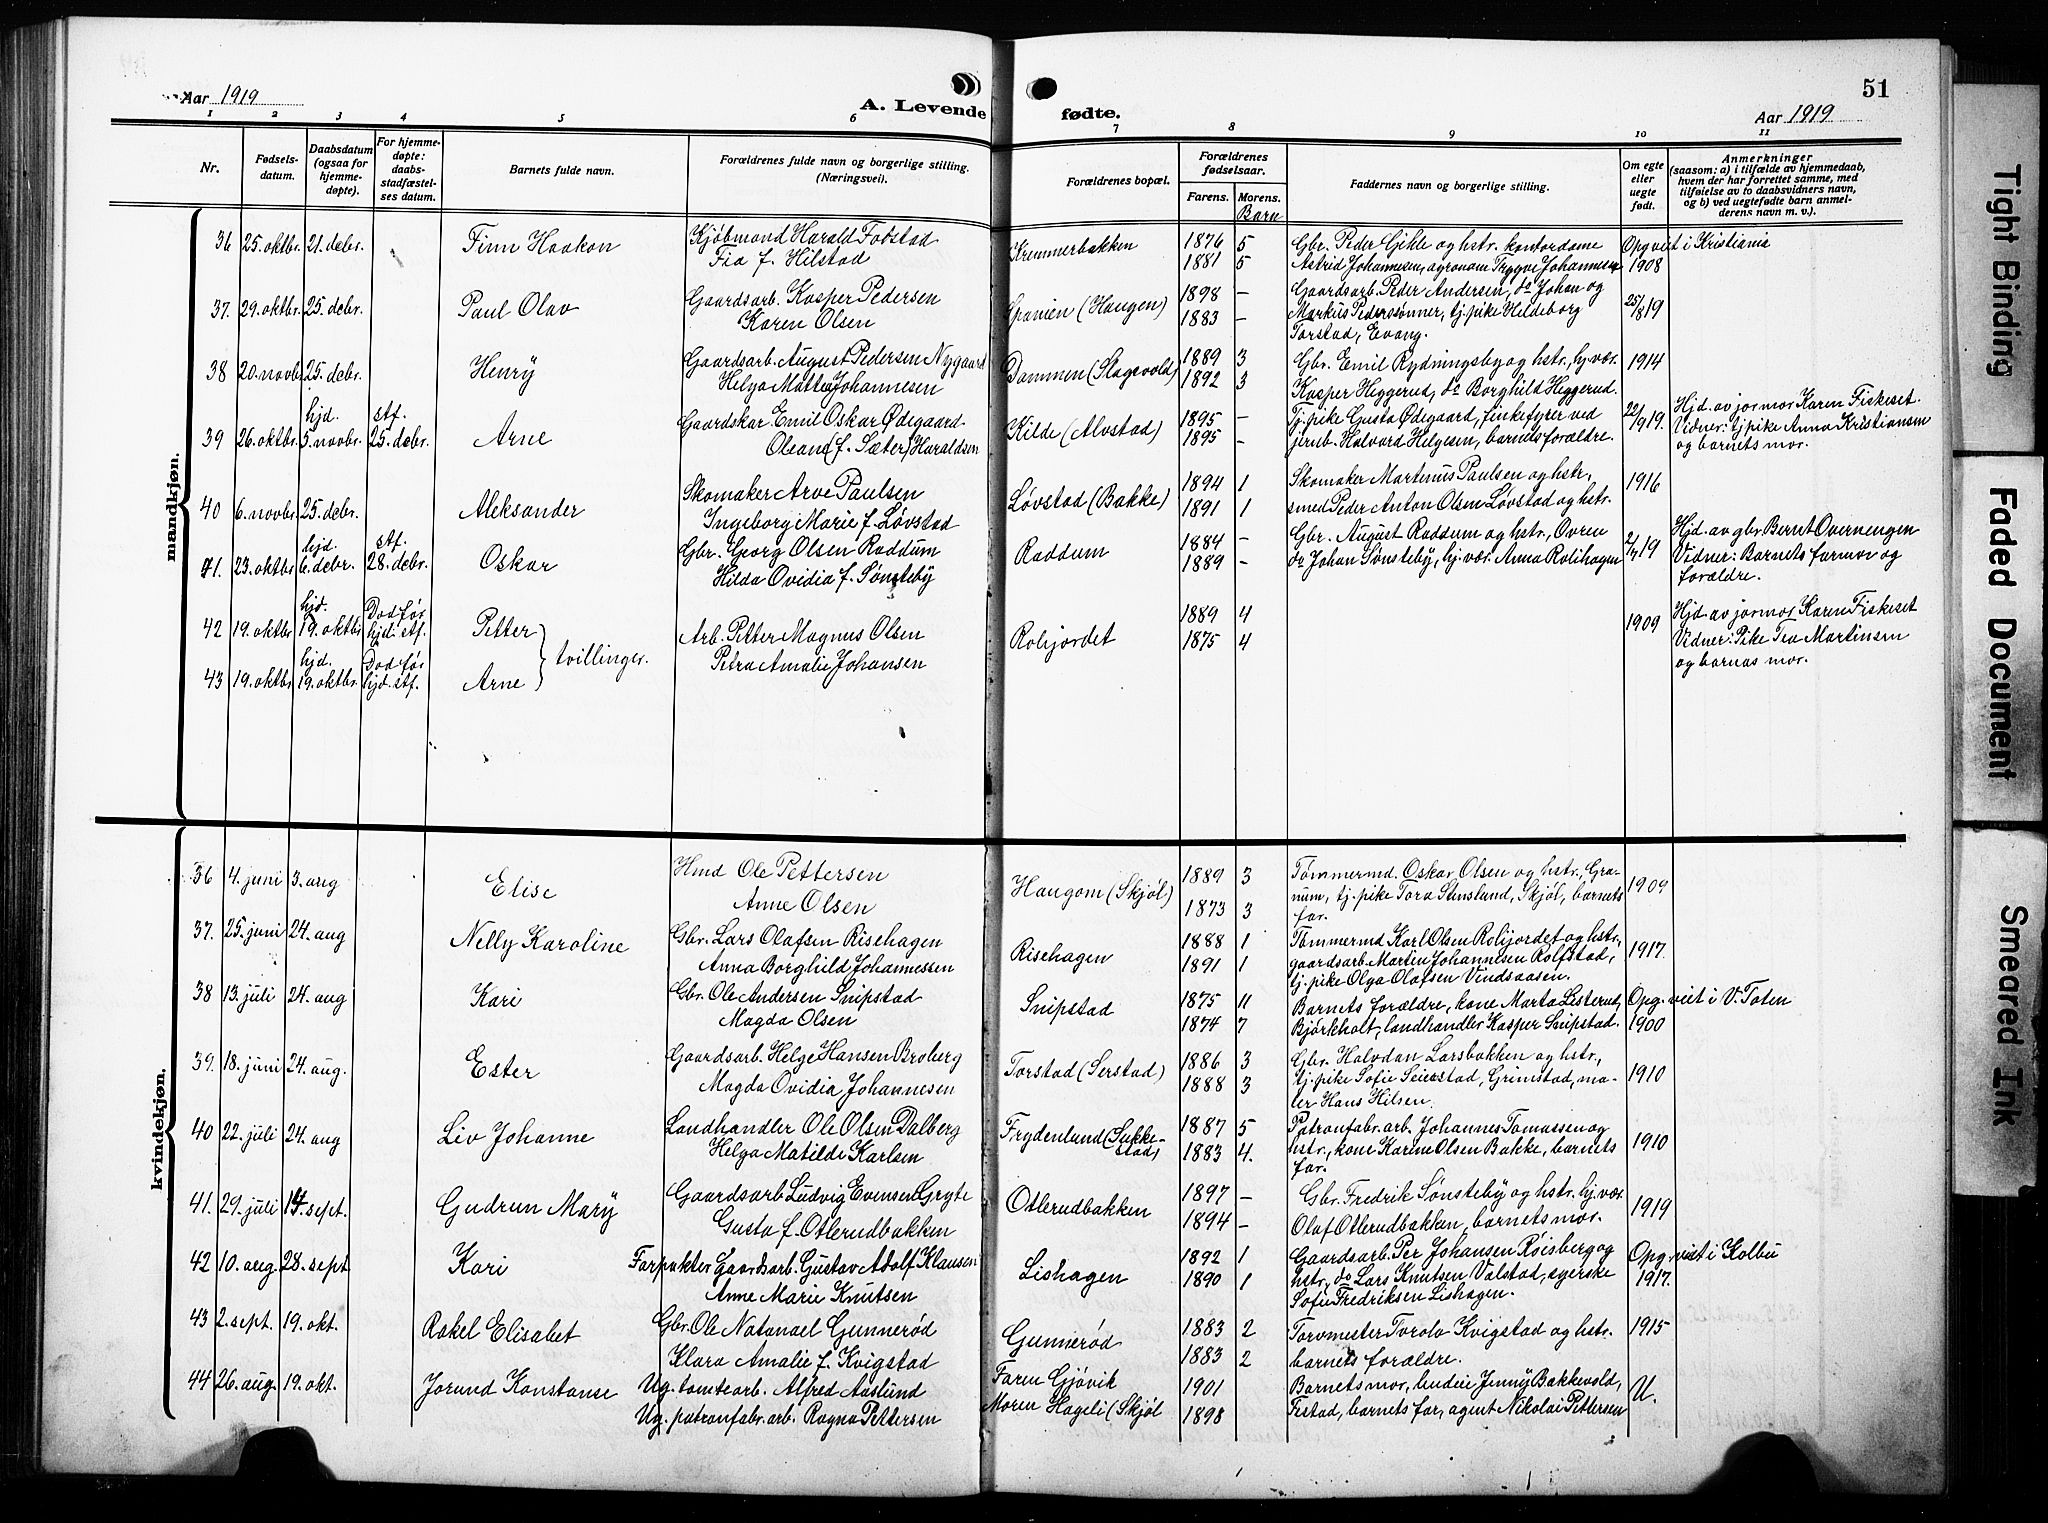 Aar 1919
A. Levende
fødte.
51
Aar 1919
1 2 3 4 5 6 7 8 9 10 11
Nr.
Fødsels-
datum.
Daabsdatum
(ogsaa for
hjemme-
døpte).
For hjemme-
døpte:
daabs-
stadfæstel-
ses datum.
Barnets fulde navn.
Forældrenes fulde navn og borgerlige stilling.
(Næringsvei).
Forældrenes bopæl.
Forældrenes
fødselsaar.
Farens. Morens.
Barn
Faddernes navn og borgerlige stilling.
Om egte
eller
uegte
født.
Anmerkninger
(saasom: a) i tilfælde av hjemmedaab,
hvem der har forrettet samme, med
tilføielse av to daabsvidners navn,
og b) ved uegtefødte barn anmel-
derens navn m. v.).
mandkjøn.
36 25. oktbr. 21. debr. Finn Haakon Kjøbmand Harald Fodstad Kremmerbakken 1876 5 Gbr. Peder Gihle og hstr. kontordame Opg viet i Kristiania
Fia f. Hilstad 1881 5 Astrid Johannesen, agronom Trygve Johannesen 1908
37. 29. oktbr. 25. debr. Paul Olav Gaardsarb. Kasper Pedersen Spanien (Haugen) 1898 – Gaardsarb. Peder Andersen, do Johan og 25/8 19
Karen Olsen 1883 – Markus Pederssønner, tj. pike Hildeborg
Torstad, Evang.
38 20. novbr. 25. debr. Henrÿ Gaardsarb. August Pedersen Nygaard Dammen (Slagsvold) 1889 3 Gbr. Emil Rydningsby og hstr., hj. vær. 1914
Helga Mathea Johannesen 1892 3 Kasper Heggerud, do Borghild Heggerud.
39 26. oktbr. hjd. 5. novbr. stf. 25. debr. Arne Gaardskar Emil Oskar Ødegaard Kilde (Alvstad) 1895 – Tj. pike Gusta Ødegaard, finkefyrer ved 22/9 19. Hjd. av jormor Karen Fiskeset.
Oleane (f. Sæter) Haraldsen 1895 – jernb. Halvard Helgesen, barnets forældre. Vidner: tj. pike Anna Kristiansen
og barnets mor.
40 6. novbr. 25. debr. Aleksander Skomaker Arve Paulsen Løvstad (Bakke) 1894 1 Skomaker Martinus Paulsen og hstr., 1916
Ingeborg Marie f. Løvstad 1891 1 smed Peder Anton Olsen Løvstad og hstr.
41. 23. oktbr. hjd. 6. debr. stf. 28. debr. Oskar Gbr. Georg Olsen Raddum Raddum 1884 – Gbr. August Raddum og hstr., Øvren 2/7 19 Hjd. av gbr. Bernt Overnengen
Hilda Ovidia f. Sønsteby 1889 – do Johan Sønsteby, hj. vær. Anna Rolihagen Vidner: Barnets farmor og
forældre.
42 19. oktbr. hjd. 19. oktbr. Død før hjd. stf. Petter Arb. Petter Magnus Olsen Roligjordet 1889 4 1909 Hjd. av jormor Karen Fiskeset
tvillinger. Petra Amalie Johansen 1875 4 Vidner: Pike Tea Martinsen
og barnas mor.
43 19. oktbr. hjd. 19. oktbr. Død før hjd. stf. Arne
kvindekjøn.
36 4. juni 3. aug Elise Hmd Ole Pettersen Haugom (Skjøl) 1889 3 Tømmermd. Oskar Olsen og hstr., Gra- 1909
Anne Olsen 1873 3 num, tj. pike Tora Stensland, Skjøl, barnets
far.
37. 25. juni 24. aug Nelly Karoline Gbr. Lars Olafsen Risehagen Risehagen 1888 1 Tømmermd Karl Olsen Rolijordet og hstr., 1917.
Anna Borghild Johannessen 1891 1 gaardsarb. Martin Johannesen Rolfstad,
tj. pike Olga Olafsen Vindsaasen.
38 13. juli 24. aug Kari Gbr. Ole Andersen Snipstad Snipstad 1875 11 Barnets forældre, kone Marta Listerud, Opg. viet i V. Toten
Magda Olsen 1874 7 Bjørkholt, landhandler Kasper Snipstad. 1900
39. 18. juni 24. aug. Ester Gaardsarb. Helge Hansen Broberg Torstad (Serstad) 1886 3 Gbr. Halvdan Larsbakken og hstr., 1910
Magda Ovidia Johannesen 1888 3 tj. pike Sofie Seierstad, Grimstad, ma-
ler Hans Hilsen.
40 22. juli 24. aug Liv Johanne Landhandler Ole Olsen Dalberg Frydenlund (Sukke- 1887 5 Patronfabr. arb. Johannes Tomassen og 1910
Helga Matilde Karlsen stad) 1883 4. hstr., kone Karine Olsen Bakke, barnets
far.
41. 29. juli 14. sept. Gudrun Marÿ Gaardsarb Ludvig Evensen Gryte Otlerudbakken 1897 – Gbr. Fredrik Sønsteby og hstr. hj. vær. 1919
Gusta f. Otlerudbakken 1894 – Olaf Otlerudbakken, barnets mor.
42 10. aug. 28. sept Kari Forpakter Gaardsarb. Gustav Adolf Klausen Lishagen 1892 1 Gaardsarb. Per Johansen Røisberg og Opg. viet i Kolbu
Anne Marie Knutsen 1890 1 hstr., do Lars Knutsen Valstad, syerske 1917.
Sofie Fredriksen Lishagen.
43 2. sept. 19. okt. Rakel Elisabet Gbr. Ole Natanael Gunnerød Gunnerød 1883 2 Torvmester Torolv Kvigstad og hstr. 1915
Klara Amalie f. Kvigstad 1883 2 barnets forældre.
44 26. aug. 19. okt. Jorund Konstanse Ug. tomtearb. Alfred Aaslund Faren Gjøvik 1901 Barnets mor, budeie Jenny Bakkevold, U.
Ug. patronfabr. arb. Ragna Pettersen Moren Hageli (Skjøl 1898 Fistad, barnets far, agent Nikolai Pettersen
Tight Binding
Faded Document
Smeared Ink